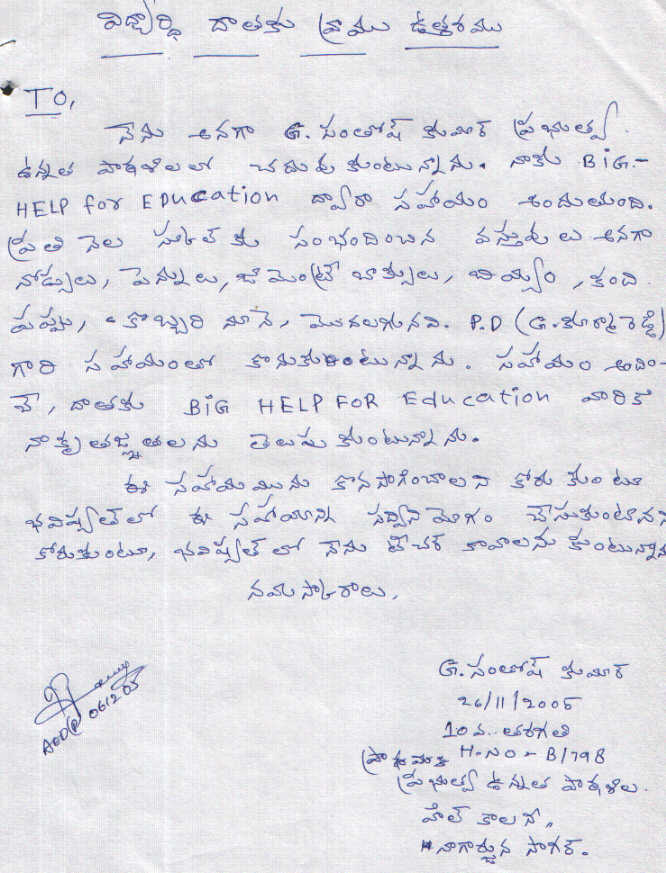 విద్యార్ధి దాతకు వ్రాయు ఉత్తరము
TO,
నేను అనగా G. సంతోష్ కుమార్ ప్రభుత్వ
ఉన్నత పాఠశాలలో చదువు కుంటున్నాను. నాకు BiG-
HELP for EDUcation ద్వారా సహాయం అందుతుంది.
ప్రతి నెల స్కూల్ కు సంభందించిన వస్తువులు అనగా
నోట్సులు, పెన్నులు, జామెంట్రీ బాక్సులు, బియ్యం, కంది
పప్పు, కొబ్బరి నూనె, మొదలగునవి. P.D (G. కూర్మా రెడ్డి)
గారి సహాయంతో కొనుకుంటున్నాను. సహాయం అందిం-
చే, దాతకు BiG HELP FOR Education వారికి
నా కృతజ్ఞతలను తెలుపు కుంటున్నాను.
ఈ సహాయమును కొనసాగించాలని కోరు కుంటూ
భవిష్యత్ లో ఈ సహాయాన్ని సద్వినియోగం చేసుకుంటానని
కోరుకుంటూ, భవిష్యత్ లో నేను టీచర్ కావాలను కుంటున్నాను
నమస్కారాలు.
G. సంతోష్ కుమార్
26/11/2005
10వ.. తరగతి
H.NO - B/79B
ప్రభుత్వ ఉన్నత పాఠశాల.
హిల్ కాలనీ,,
నాగార్జున సాగర్.